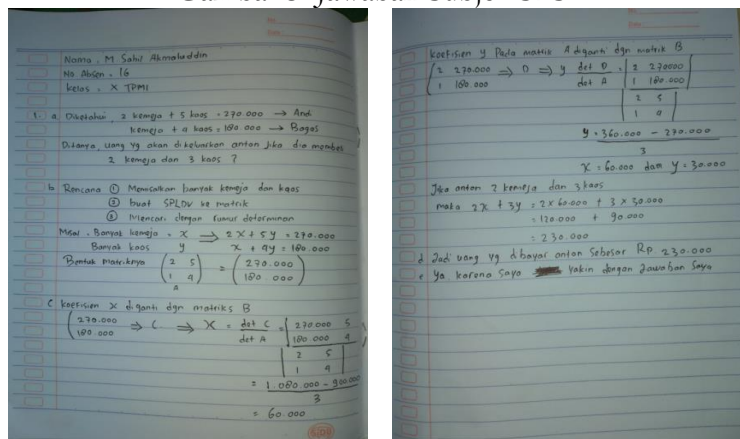 Nama . M Sahil Akmaluddin
No Absen . 16
Kelas . X TPMI
1. a Diketahui, 2 kemeja + 5 kaos = 270.000 → Andi
kemeja + 4 kaos = 180.000 → Bagas
Ditanya, uang yg akan di keluarkan anton jika dia membeli
2 kemeja dan 3 kaos ?
b Rencana ① Memisalkan banyak kemeja dan kaos
② buat SPLDV ke matrik
③ Mencari dengan rumus determinan
Misal . Banyak kemeja = x ⇒ 2x + 5y = 270.000
Banyak kaos y x + 4y = 180.000
Bentuk matriknya ( 2 5 ) = ( 270.000 )
( 1 4 ) ( 180.000 )
A
c koefisien x diganti dgn matriks B
( 270.000 ⇒ C ⇒ X = det C = | 270.000 5 |
180.000 det A | 180.000 4 |
| 2 5 |
| 1 4 |
= 1.080.000 - 900.000
3
= 60.000
koefisien y Pada matrik A diganti dgn matrik B
( 2 270.000 ⇒ D ⇒ y det D = | 2 270000 |
1 180.000 det A | 1 180.000 |
| 2 5 |
| 1 4 |
y = 360.000 - 270.000
3
x = 60.000 dan y = 30.000
Jika anton 2 kemeja dan 3 kaos
maka 2x + 3y = 2 x 60.000 + 3 x 30.000
= 120.000 + 90.000
= 230.000
d Jadi uang yg dibayar anton Sebesar Rp. 230.000
e Ya karena saya yakin dengan Jawaban Saya